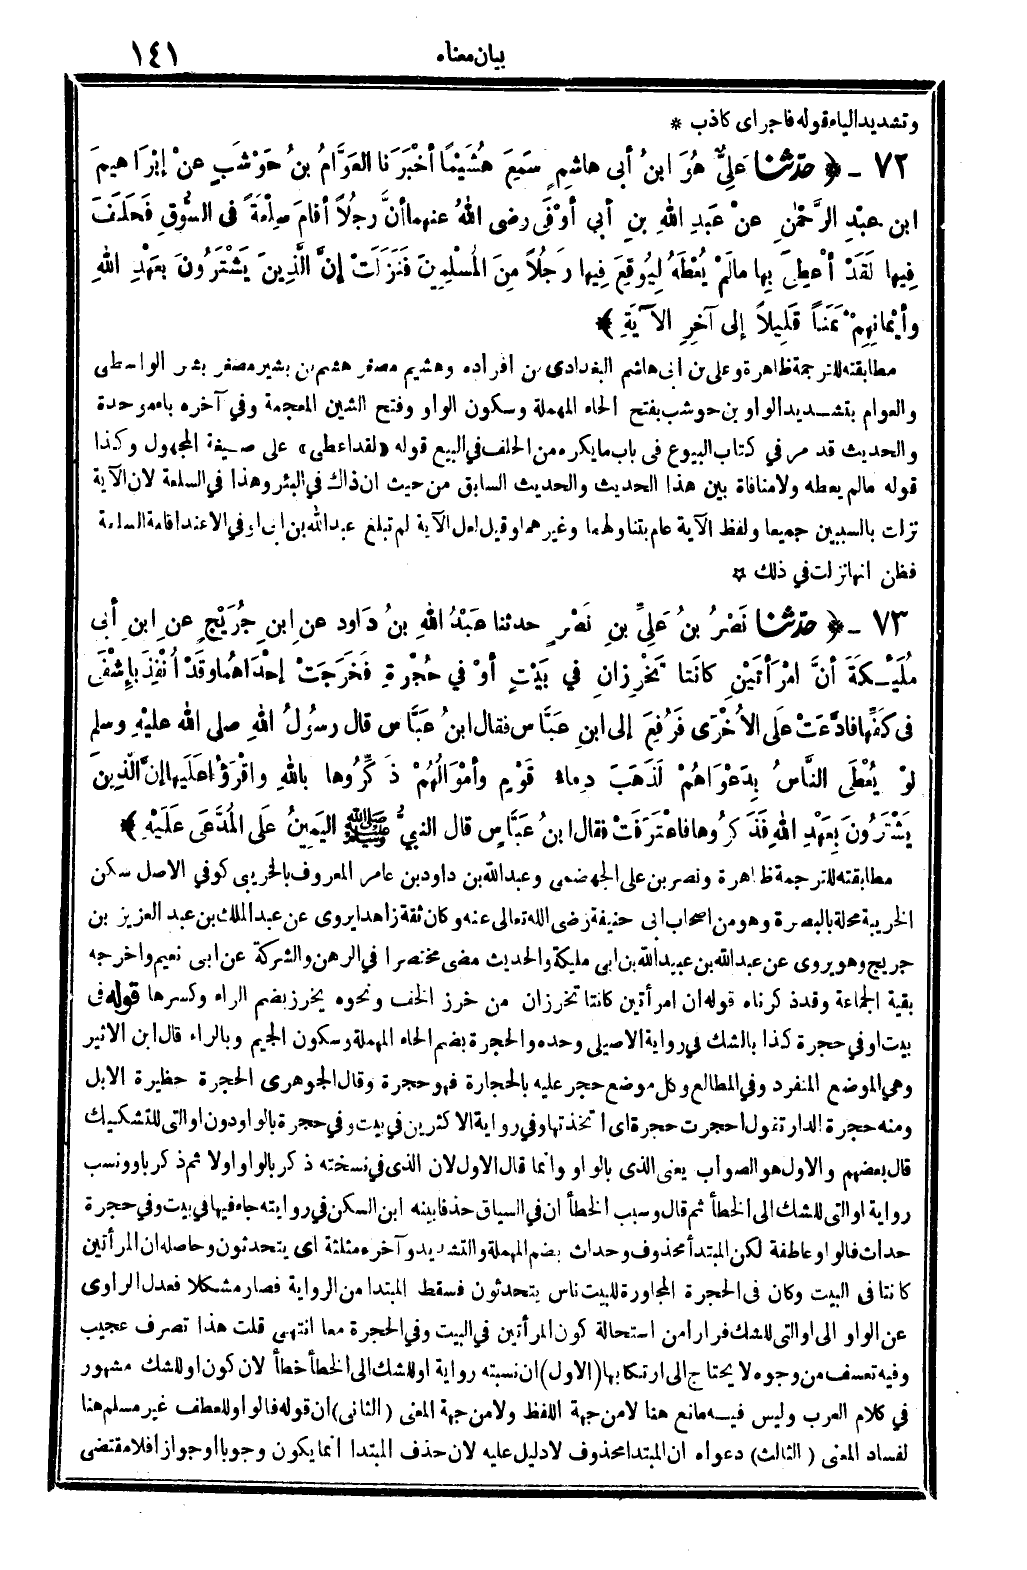 بيان معناه ١٤١
وتشديد الياء قوله فاجر اى كاذب *
٧٢ - ﴿ حَدَّثَنَا عَلِيٌّ هُوَ ابنُ أبى هاشِمٍ سَمِعَ هُشَيْمًا أخْبَرَنَا العَوَّامُ بنُ حَوْشَبٍ عنْ إبْرَاهِيمَ
ابنِ عبْدِ الرَّحْمٰنِ عنْ عَبْدِ اللهِ بنِ أبي أوْفَى رضى اللهُ عنهما أنَّ رجُلاً أقامَ سِلْعَةً فى السُّوقِ فَحَلَفَ
فِيها لَقَدْ أُعْطِىَ بِها مالَمْ يُعْطَهُ لِيُوقِعَ فِيها رَجُلاً مِنَ المُسْلِمِينَ فَنَزَلَتْ إنَّ الَّذِينَ يَشْتَرُونَ بِعَهْدِ اللهِ
وأيْمانِهِمْ ثَمَنَاً قَلِيلاً إلى آخِرِ الآيَةِ ﴾
مطابقته للترجمة ظاهرة وعلى بن ابى هاشم البغدادى من افراده وهشيم مصغر هشم بن بشير مصغر بشر الواسطى
والعوام بتشديد الواو بن حوشب بفتح الحاء المهملة وسكون الواو وفتح الشين المعجمة وفي آخره باء موحدة
والحديث قد مر في كتاب البيوع فى باب ما يكره من الحلف في البيع قوله «لقد اعطى» على صيغة المجهول وكذا
قوله مالم يعطه ولا منافاة بين هذا الحديث والحديث السابق من حيث ان ذاك في البئر وهذا في السلعة لان الآية
نزلت بالسببين جميعا ولفظ الآية عام يتناولهما وغيرهما وقيل لعل الآية لم تبلغ عبدالله بن ابى اوفي الا عند اقامة السلعة
فظن انها نزلت في ذلك *
٧٣ - ﴿ حَدَّثَنَا نَصْرُ بنُ عَلِيِّ بنِ نَصْرٍ حدثنا عبْدُ اللهِ بنُ دَاود عنِ ابنِ جُرَيْجٍ عنِ ابنِ أبى
مُلَيْكَةَ أنَّ امْرَأتَيْنِ كانَتا تَخْرِزانِ في بَيْتٍ أوْ في حُجْرَةِ فَخَرَجَتْ إحْدَاهُما وقَدْ أُنْفِذَ بِإِشْفَى
فى كَفِّها فادَّعَتْ علَى الأُخْرَى فَرُفِعَ إلى ابنِ عبَّاسٍ فقال ابنُ عبَّاسٍ قال رسُولُ اللهِ صلى الله عليهِ وسلم
لوْ يُعْطَى النَّاسُ بِدَعْوَاهُمْ لَذَهَبَ دِماءُ قَوْمٍ وأمْوَالُهُمْ ذَكِّرُوها باللهِ واقْرَؤُا علَيها إنَّ الّذِينَ
يَشْتَرُونَ بِعَهْدِ اللهِ فَذَكَرُوها فاعْتَرَفَتْ فقال ابنُ عبَّاسٍ قال النبيُّ ﷺ اليَمِينُ علَى المُدَّعَى علَيْهِ ﴾
مطابقته للترجمة ظاهرة ونصر بن على الجهضمى وعبدالله بن داود بن عامر المعروف بالخريبى كوفي الاصل سكن
الخريبة محلة بالبصرة وهو من اصحاب ابى حنيفة رضى الله تعالى عنه وكان ثقة زاهدا يروى عن عبد الملك بن عبد العزيز بن
جريج وهو يروى عن عبدالله بن عبيدالله بن ابى مليكة والحديث مضى مختصرا في الرهن والشركة عن ابى نعيم واخرجه
بقية الجماعة وقد ذكرناه قوله ان امرأتين كانتا تخرزان من خرز الخف ونحوه يخرز بضم الراء وكسرها قوله فى
بيت او في حجرة كذا بالشك في رواية الاصيلى وحده والحجرة بضم الحاء المهملة وسكون الجيم وبالراء قال ابن الاثير
وهي الموضع المنفرد وفي المطالع وكل موضع حجر عليه بالحجارة فهو حجرة وقال الجوهرى الحجرة حظيرة الابل
ومنه حجرة الدار تقول احجرت حجرة اى اتخذتها وفي رواية الاكثرين في بيت وفي حجرة بالواو دون او التى للتشكيك
قال بعضهم والاول هو الصواب يعنى الذى بالواو وانما قال الاول لان الذى في نسخته ذكر بالواو اولا ثم ذكر باو ونسب
رواية او التى للشك الى الخطأ ثم قال وسبب الخطأ ان في السياق حذفا بينه ابن السكن في روايته جاء فيها في بيت وفي حجرة
حداث فالواو عاطفة لكن المبتدأ محذوف وحداث بضم المهملة والتشديد وآخره مثلثة اى يتحدثون وحاصله ان المرأتين
كانتا فى البيت وكان فى الحجرة المجاورة للبيت ناس يتحدثون فسقط المبتدا من الرواية فصار مشكلا فعدل الراوى
عن الواو الى او التى للشك فرارا من استحالة كون المرأتين في البيت وفي الحجرة معا انتهى قلت هذا تصرف عجيب
وفيه تعسف من وجوه لا يحتاج الى ارتكابها (الاول) ان نسبته رواية او للشك الى الخطأ خطأ لان كون او للشك مشهور
في كلام العرب وليس فيه مانع هنا لا من جهة اللفظ ولا من جهة المعنى (الثانى) ان قوله فالواو للعطف غير مسلم هنا
لفساد المعنى (الثالث) دعواه ان المبتدا محذوف لا دليل عليه لان حذف المبتدا انما يكون وجوبا او جوازا فلا مقتضى